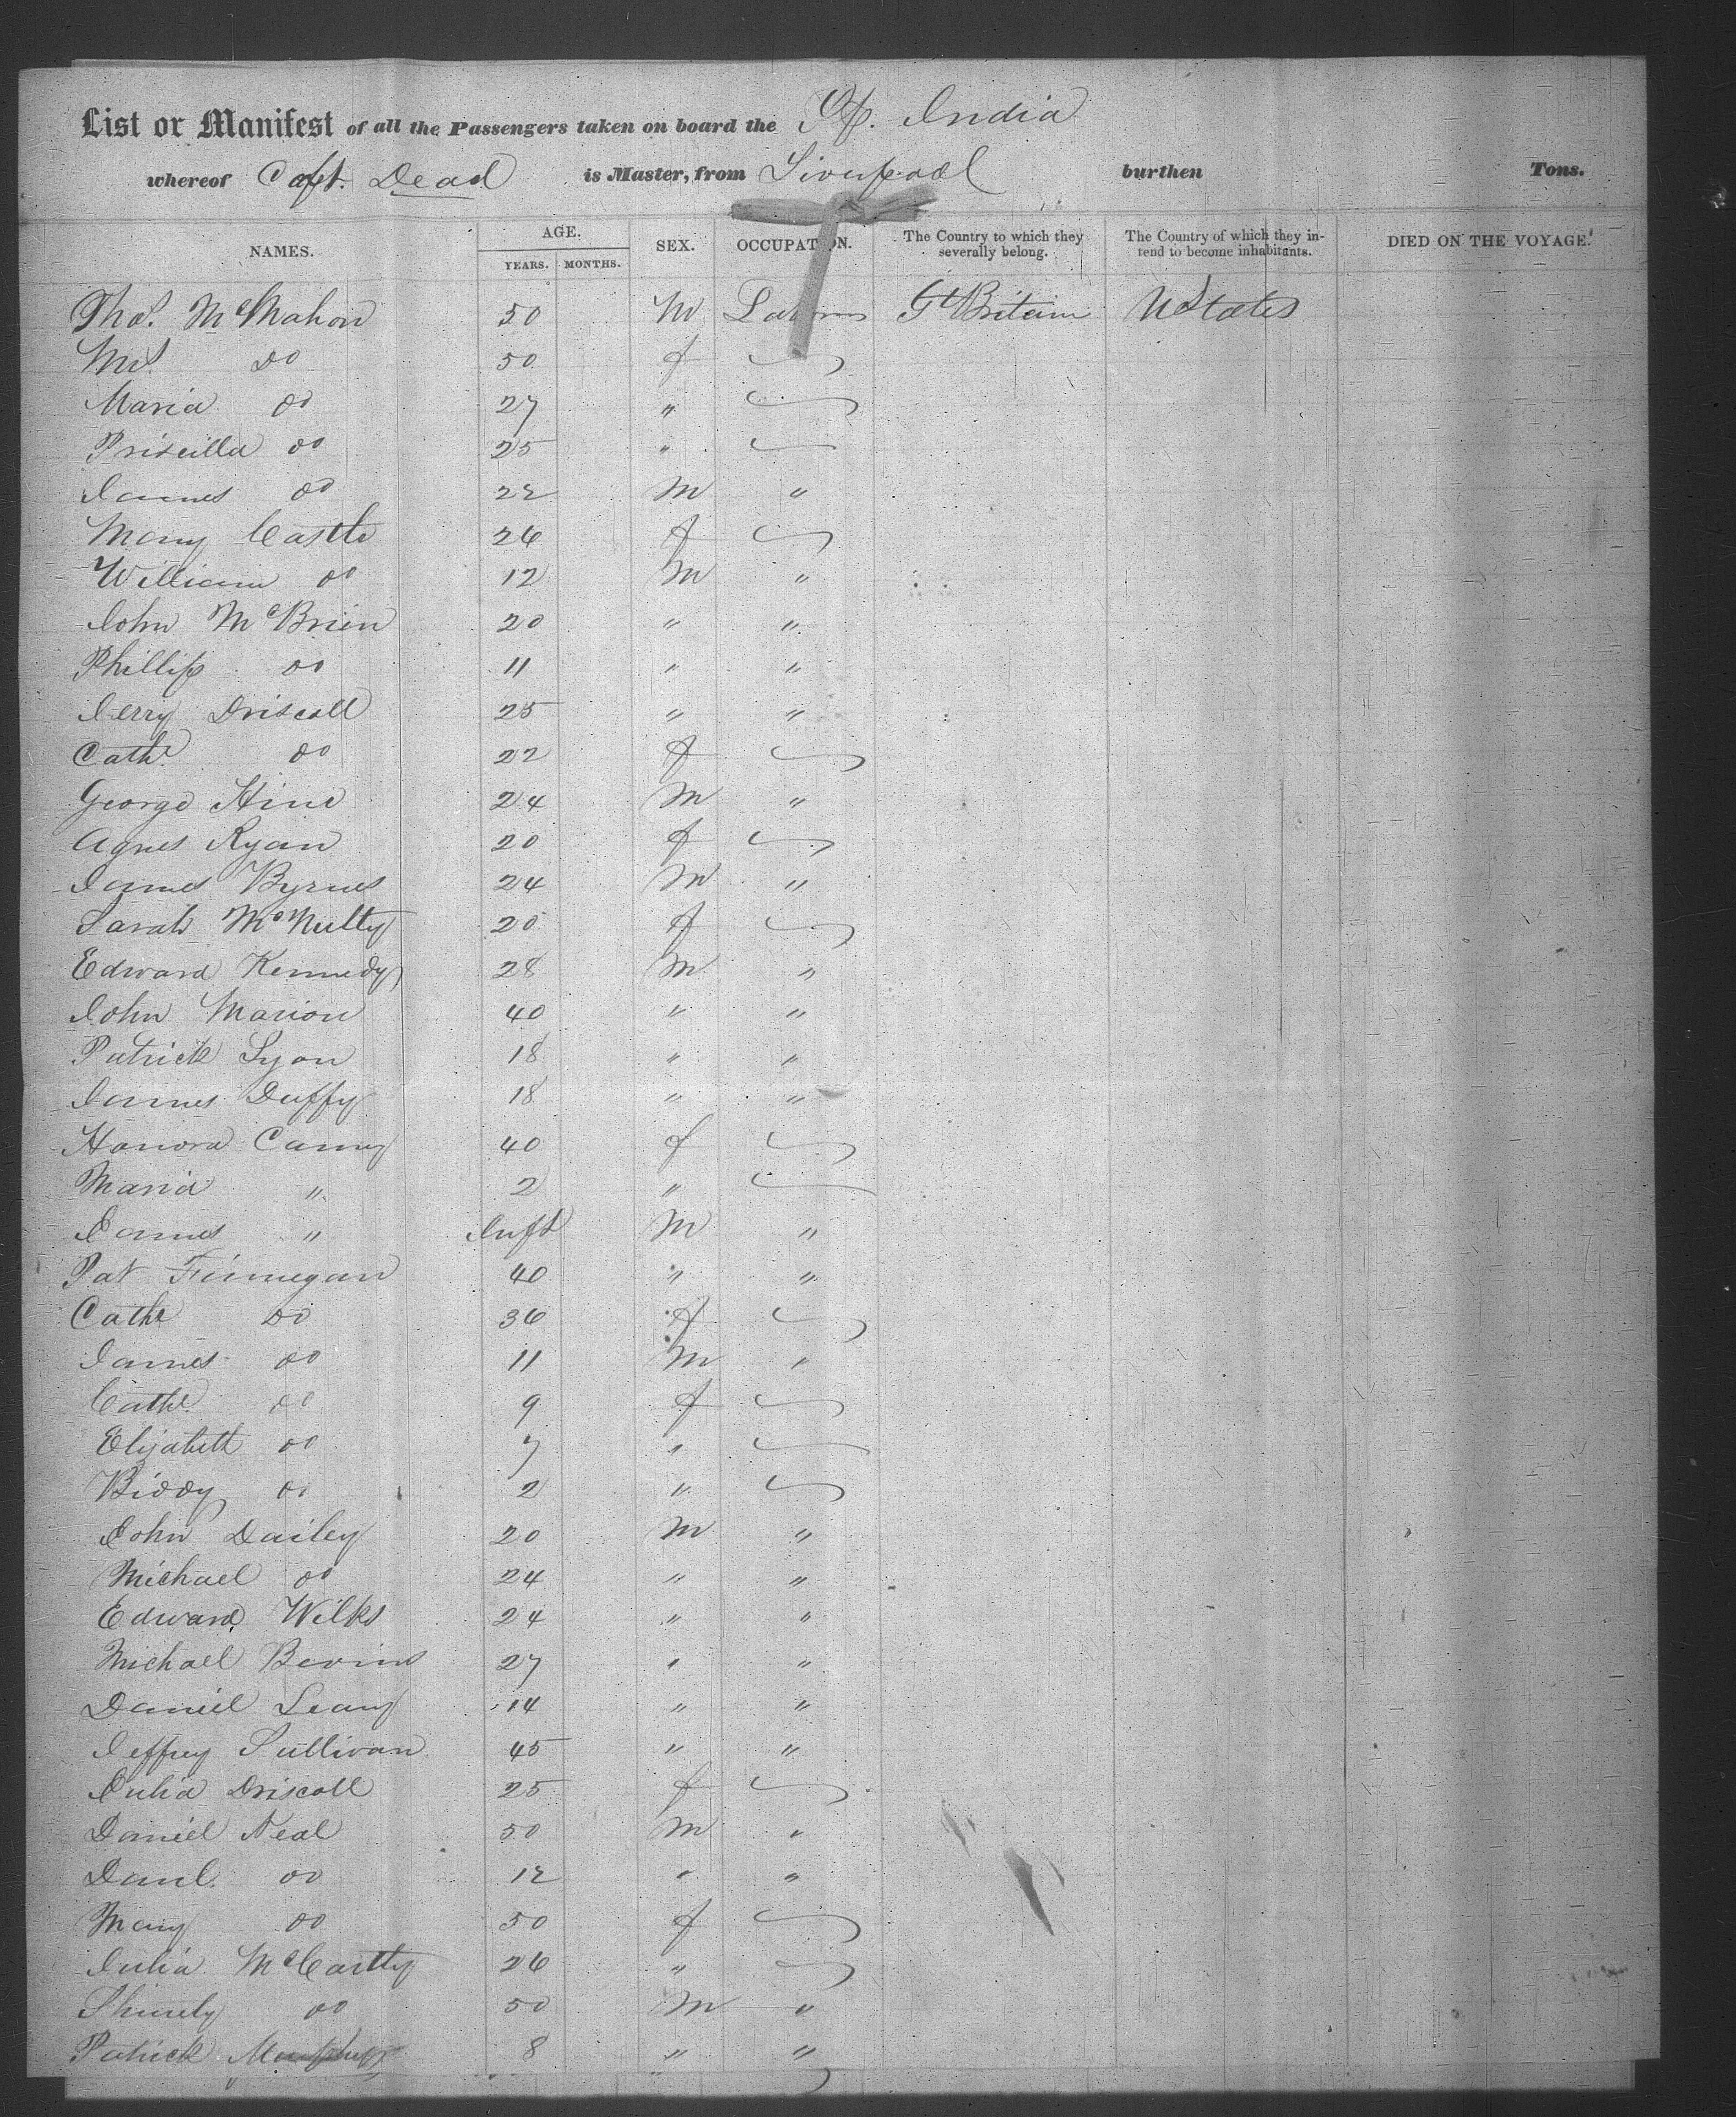 List or Manifest of all the Passengers taken on board the Sp. India
whereof Capt. Dead is Master, from Liverpool burthen Tons.
NAMES. AGE. YEARS. MONTHS. SEX. OCCUPATION. The Country to which they severally belong. The Country of which they intend to become inhabitants. DIED ON THE VOYAGE.
Thos. McMahon 50 M Labour Gt Britain U States
Mrs. Do 50 f
Maria do 27 "
Priscilla do 25 "
James do 22 M "
Mary Castle 26 f
William do 12 M "
John McBrien 20 " "
Phillip do 11 " "
Jerry Driscoll 25 " "
Cathe do 22 f
George Hine 24 M "
Agnes Ryan 20 f
James Byrnes 24 M "
Sarah McNulty 20 f
Edward Kennedy 28 M "
John Marion 40 " "
Patrick Lyon 18 " "
James Duffy 18 " "
Honora Carney 40 f
Maria " 2 "
James " Inft M "
Pat Finnegan 40 " "
Cathe Do 36 f
James do 11 M "
Cathe do 9 f
Elizabeth do 7 "
Biddy do 2 "
John Dailey 20 M "
Michael do 24 " "
Edward Wilks 24 " "
Michael Bevins 27 " "
Daniel Leary 14 " "
Jeffrey Sullivan 45 " "
Julia Driscoll 25 f
Daniel Neal 50 M "
Danl. do 12 " "
Mary do 50 f
Julia McCarthy 26 "
do 50 M "
Patrick Murphy 8 " "